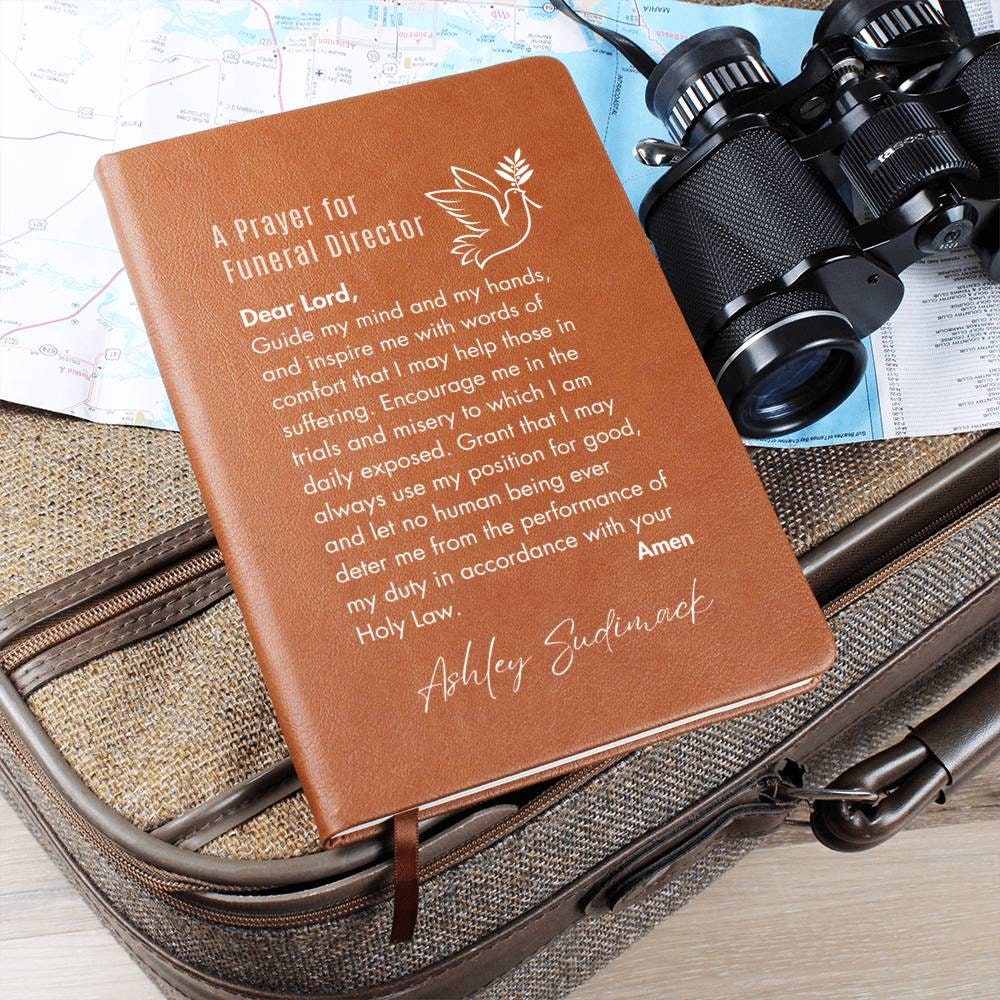 A Prayer for
Funeral Director
Dear Lord,
Guide my mind and my hands,
and inspire me with words of
comfort that I may help those in
suffering. Encourage me in the
trials and misery to which I am
daily exposed. Grant that I may
always use my position for good,
and let no human being ever
deter me from the performance of
my duty in accordance with your
Holy Law.
Amen
Ashley Sudimack
tasco
INTRACOASTAL
Parrish